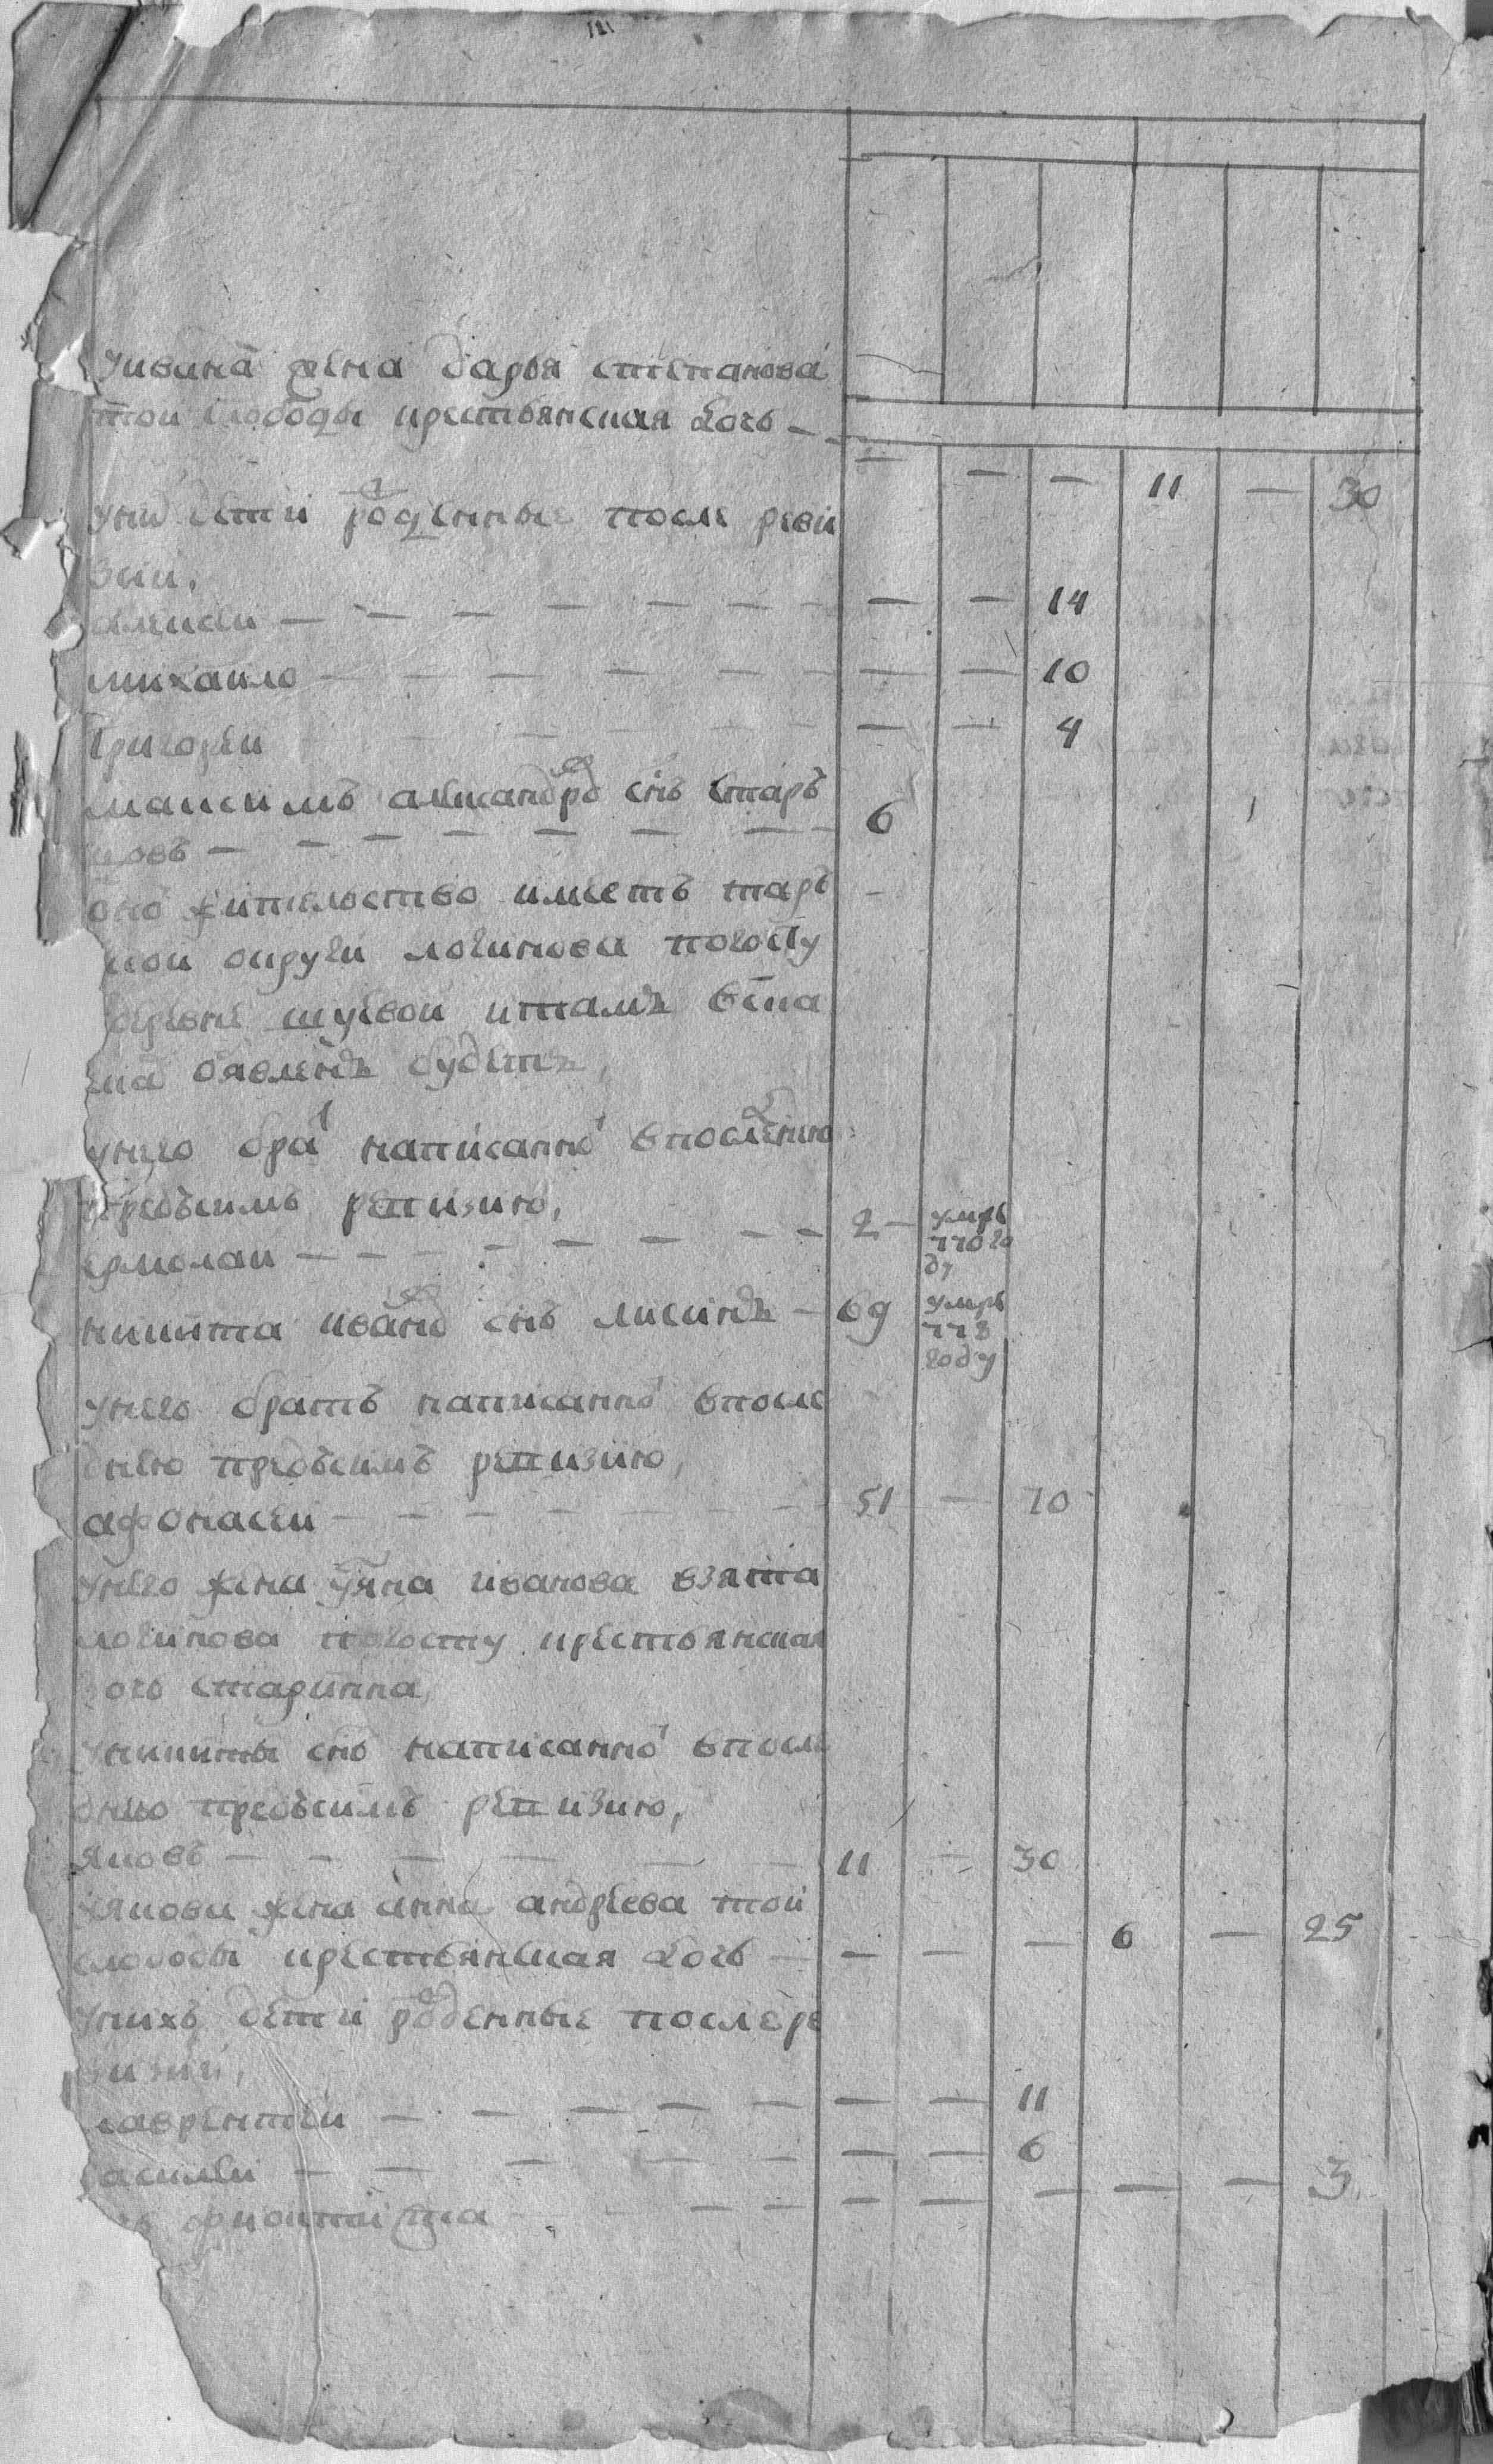 уивана жена дарья степанова
той слободы крестьянская дочь — — — — 11 — 30
у них дети рожденные после реви
зии,
алексеи — — — — — — — — — 14
михаило — — — — — — — — 10
григореи — — — — — — 4
максимъ александро снъ старъ
цовъ — — — — — — — 6
оно жительство имеетъ таръ
ской округи логинова погосту
деревне шуевой итамъ вска
ска обявленъ будетъ,
у него бра написанно впоследнюю
предъсимъ ревизию,
ермолаи — — — — — — — — 2 — умръ 770 го ду
никита ивано снъ лисинъ — 69 умръ 778 году
у него братъ написанно в после
днею предъсимъ ревизию,
афонасеи — — — — — — 51 — 70
у него жена уяна иванова взята
логинова погосту крестьянская
дочь старинна,
уникиты снъ написанно впосле
днею предъсимъ ревизию,
яковъ — — — — — — 11 — 30
уякова жена анна андреева той
слободы крестьянская дочь — — — — 6 — 25
у нихъ дети роденные после ре
визии,
лаврентеи — — — — — — — 11
василеи — — — — — — — 6
феоктиста — — — — — — — 3